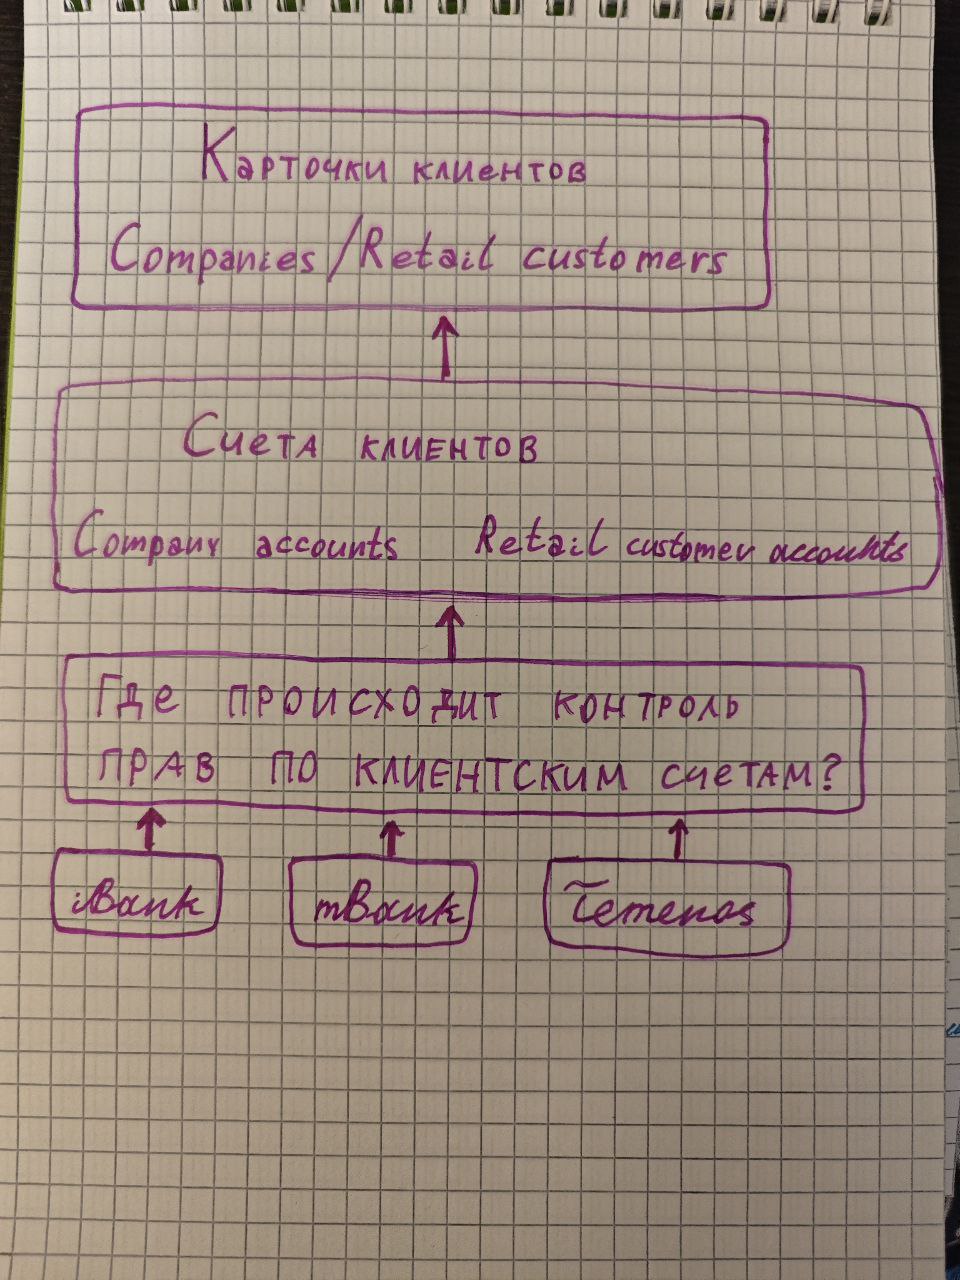 Карточки клиентов
Companies/Retail customers
Счета клиентов
Company accounts Retail customer accounts
Где происходит контроль
прав по клиентским счетам?
iBank mBank Temenos